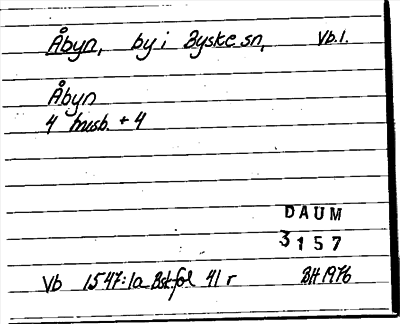 Åbyn, by i Byske sn, Vb.l.
Åbyn
4 husb. + 4
DAUM
3157
Vb 1547:1a Bskfol 41 r BH 1976